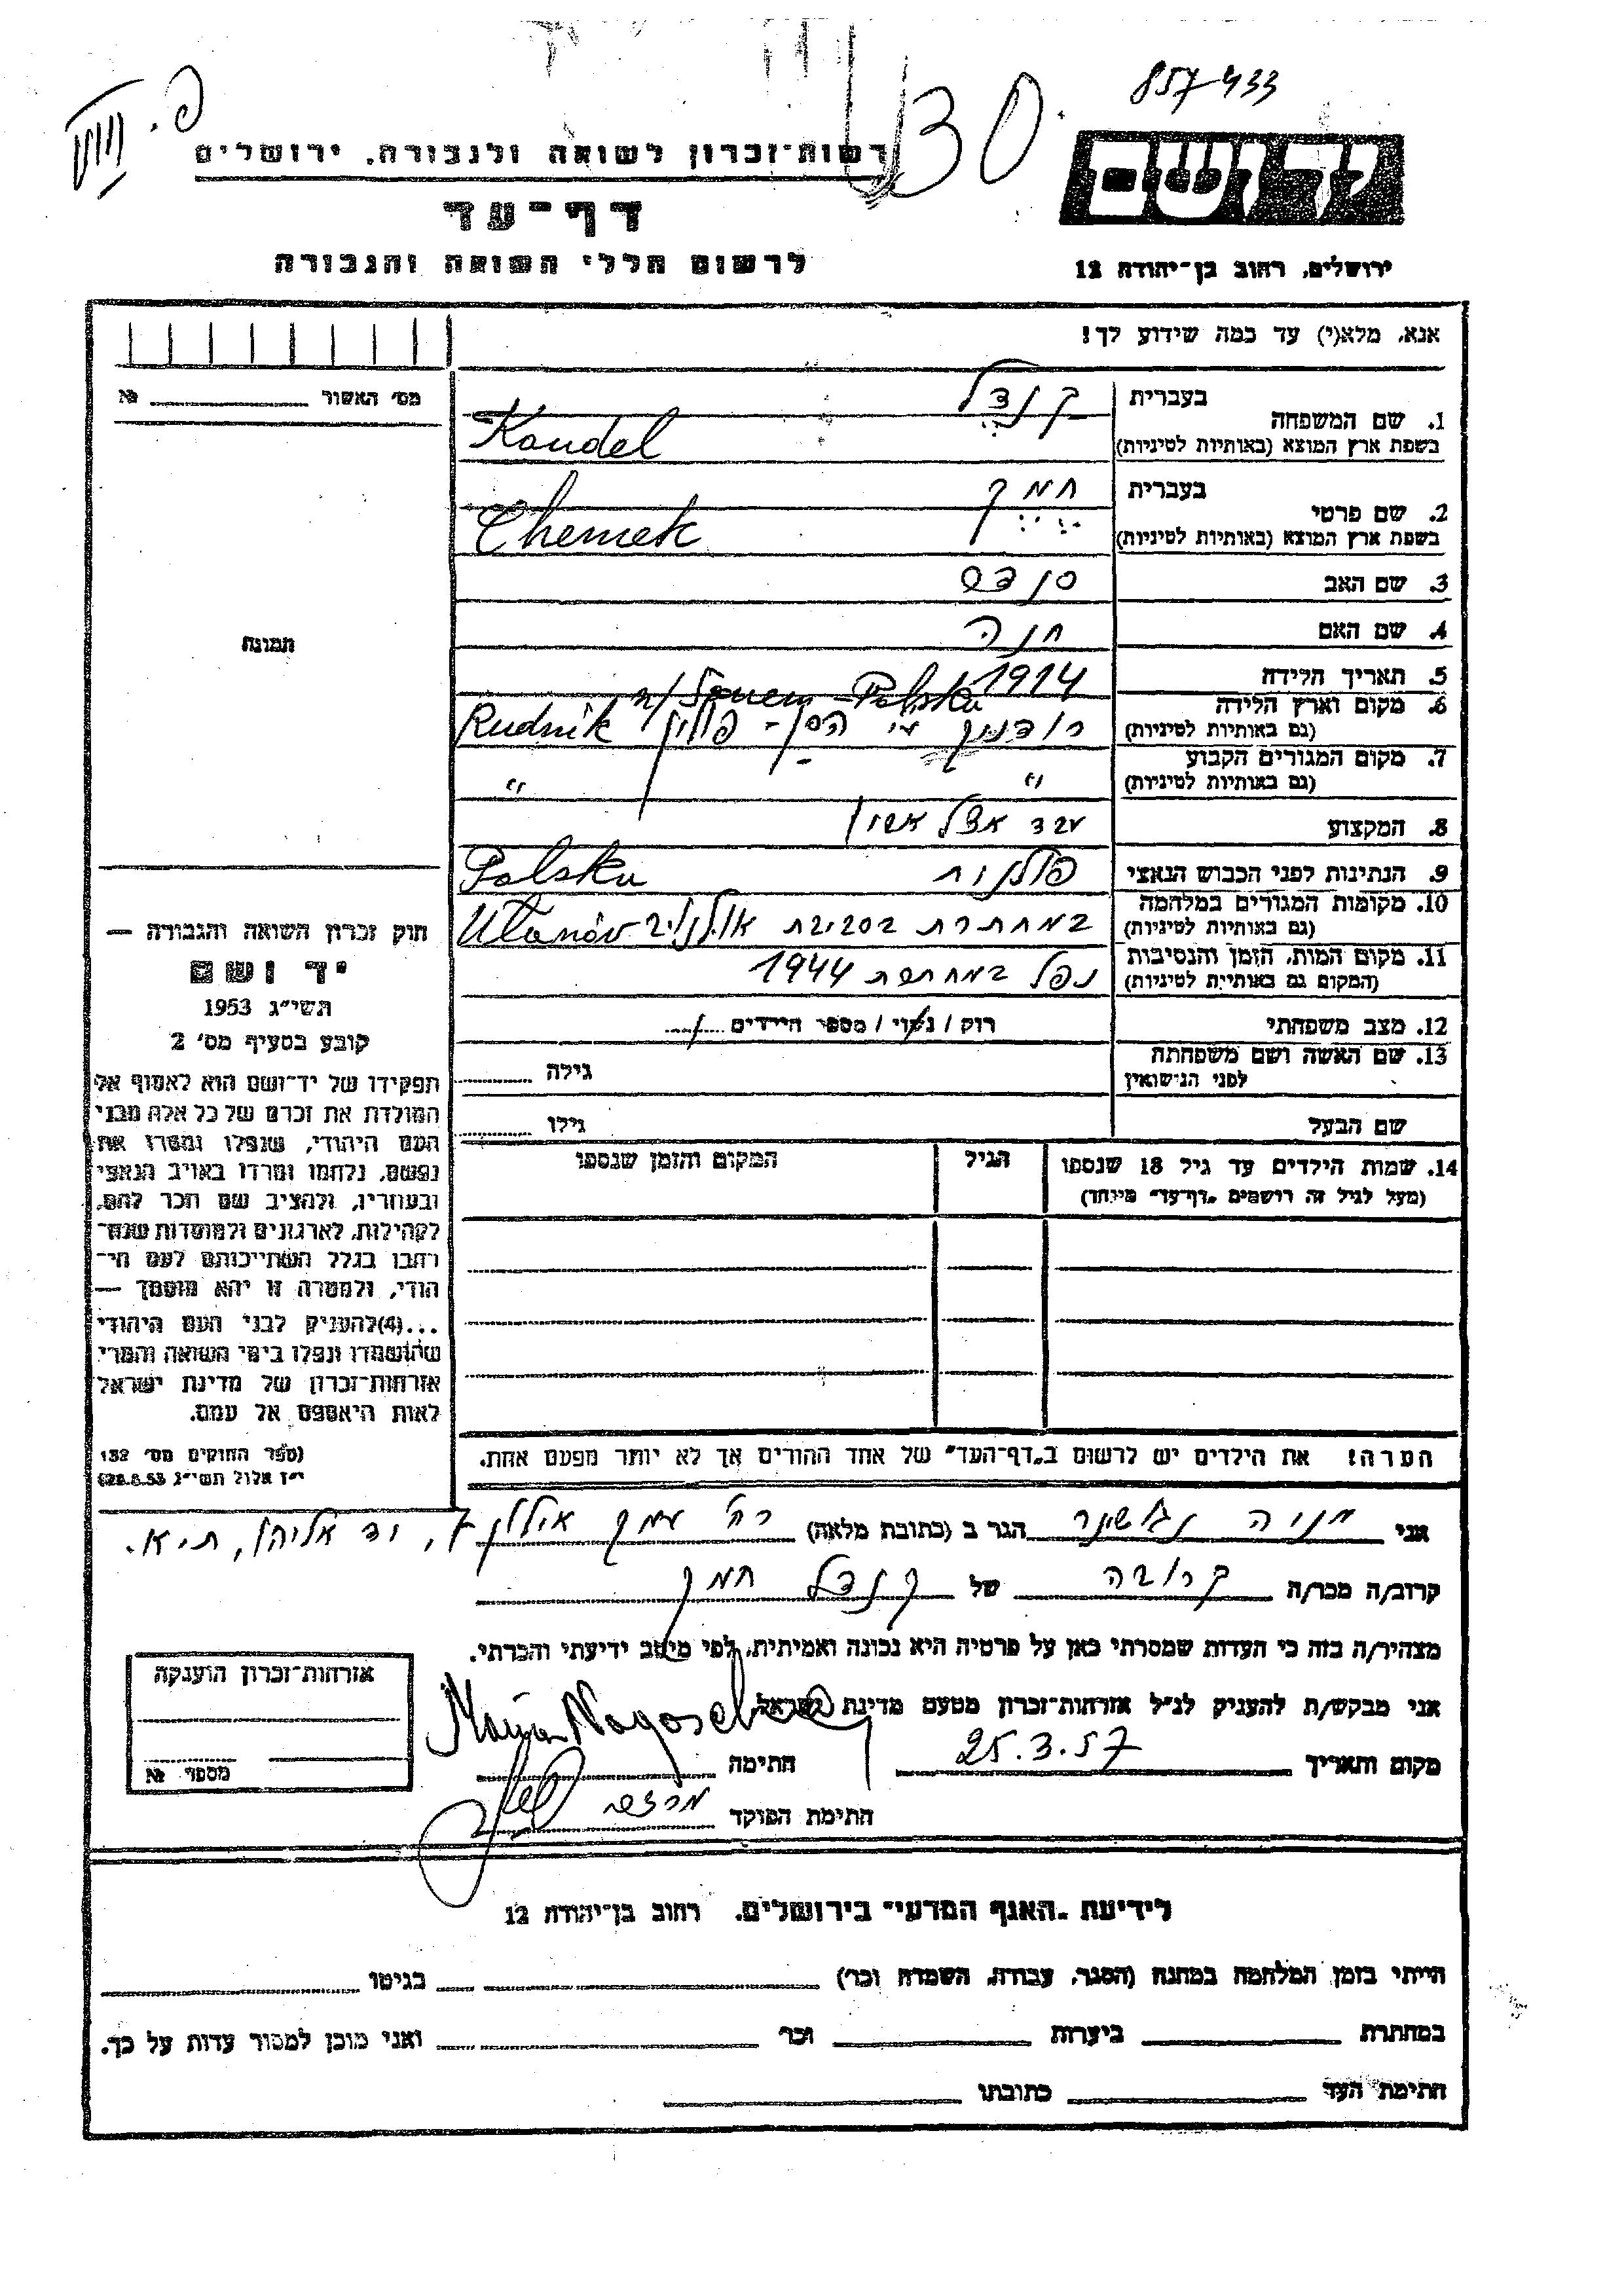 857433
30
פ.
רשות־זכרון לשואה ולגבורה, ירושלים
יד ושם
דף־עד
לרשום חללי השואה והגבורה
ירושלים, רחוב בן־יהודה 12
אנא, מלא(י) עד כמה שידוע לך!
מס׳ האשור № 
1. שם המשפחה
בעברית קנדל
בשפת ארץ המוצא (באותיות לטיניות) Kandel
2. שם פרטי
בעברית חמק
בשפת ארץ המוצא (באותיות לטיניות) Chemek
3. שם האב סנדר
4. שם האם חנה
5. תאריך הלידה 1914
6. מקום וארץ הלידה
(גם באותיות לטיניות) רודניק ע״י הסן - פולין Rudnik n/Sanem - Polska
7. מקום המגורים הקבוע
(גם באותיות לטיניות) " "
8. המקצוע עבד אצל אביו
9. הנתינות לפני הכבוש הנאצי פולנית Polska
10. מקומות המגורים במלחמה
(גם באותיות לטיניות) במחתרת בסביבת אולנוב Ulanów
11. מקום המות, הזמן והנסיבות
(המקום גם באותיות לטיניות) נפל במחתרת 1944
12. מצב משפחתי רוק / נשוי / מספר הילדים
13. שם האשה ושם משפחתה
לפני הנישואין גילה
שם הבעל גילו
14. שמות הילדים עד גיל 18 שנספו הגיל המקום והזמן שנספו
(מעל לגיל זה רושמים "דף־עד" מיוחד)
תמונה
חוק זכרון השואה והגבורה —
יד ושם
תשי״ג 1953
קובע בסעיף מס׳ 2
תפקידו של יד־ושם הוא לאסוף אל
המולדת את זכרם של כל אלה מבני
העם היהודי, שנפלו ומסרו את
נפשם, נלחמו ומרדו באויב הנאצי
ובעוזריו, ולהציב שם וזכר להם,
לקהילות, לארגונים ולמוסדות שנח־
רבו בגלל השתייכותם לעם הי־
הודי, ולמטרה זו יהא מוסמך —
...(4)להעניק לבני העם היהודי
שהושמדו ונפלו בימי השואה והמרי
אזרחות־זכרון של מדינת ישראל
לאות היאספם אל עמם.
(ספר החוקים מס׳ 132
י״ז אלול תשי״ג 28.8.53)
הערה! את הילדים יש לרשום ב"דף־העד" של אחד ההורים אך לא יותר מפעם אחת.
אני מניה נגושינר הגר ב (כתובת מלאה) רח׳ עמק אילון 7, יד אליהו, ת״א.
קרוב/ה מכר/ה קרובה של קנדל חמק
מצהיר/ה בזה כי העדות שמסרתי כאן על פרטיה היא נכונה ואמיתית, לפי מיטב ידיעתי והכרתי.
אני מבקש/ת להעניק לנ״ל אזרחות־זכרון מטעם מדינת ישראל
מקום ותאריך 25.3.57 חתימה
חתימת הפוקד
אזרחות־זכרון הוענקה
מספר №
לידיעת "האגף המדעי" בירושלים. רחוב בן־יהודה 12
הייתי בזמן המלחמה במחנה (הסגר, עבודה, השמדה וכו׳) בגיטו
במחתרת ביערות וכו׳ ואני מוכן למסור עדות על כך.
חתימת העד כתובתו